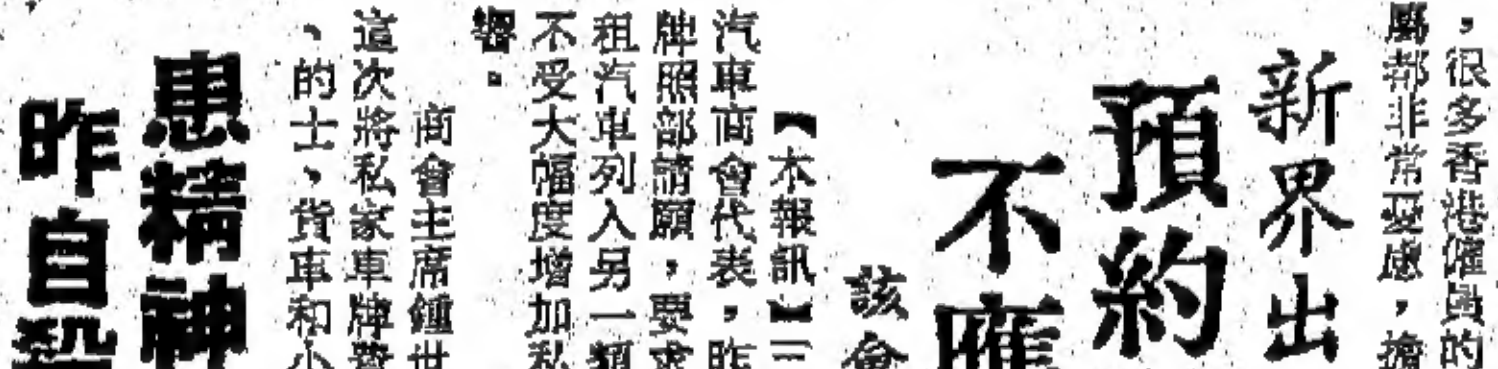 ，很多香港僱員的
屬都非常憂慮，擔
新界出
預約
不應
該會
【本報訊】三
汽車商會代表，昨
牌照部請願，要求
租汽車列入另一類
不受大幅度增加私
響。
商會主席鍾世
這次將私家車牌費
、的士、貨車和小
患精神
昨自殺